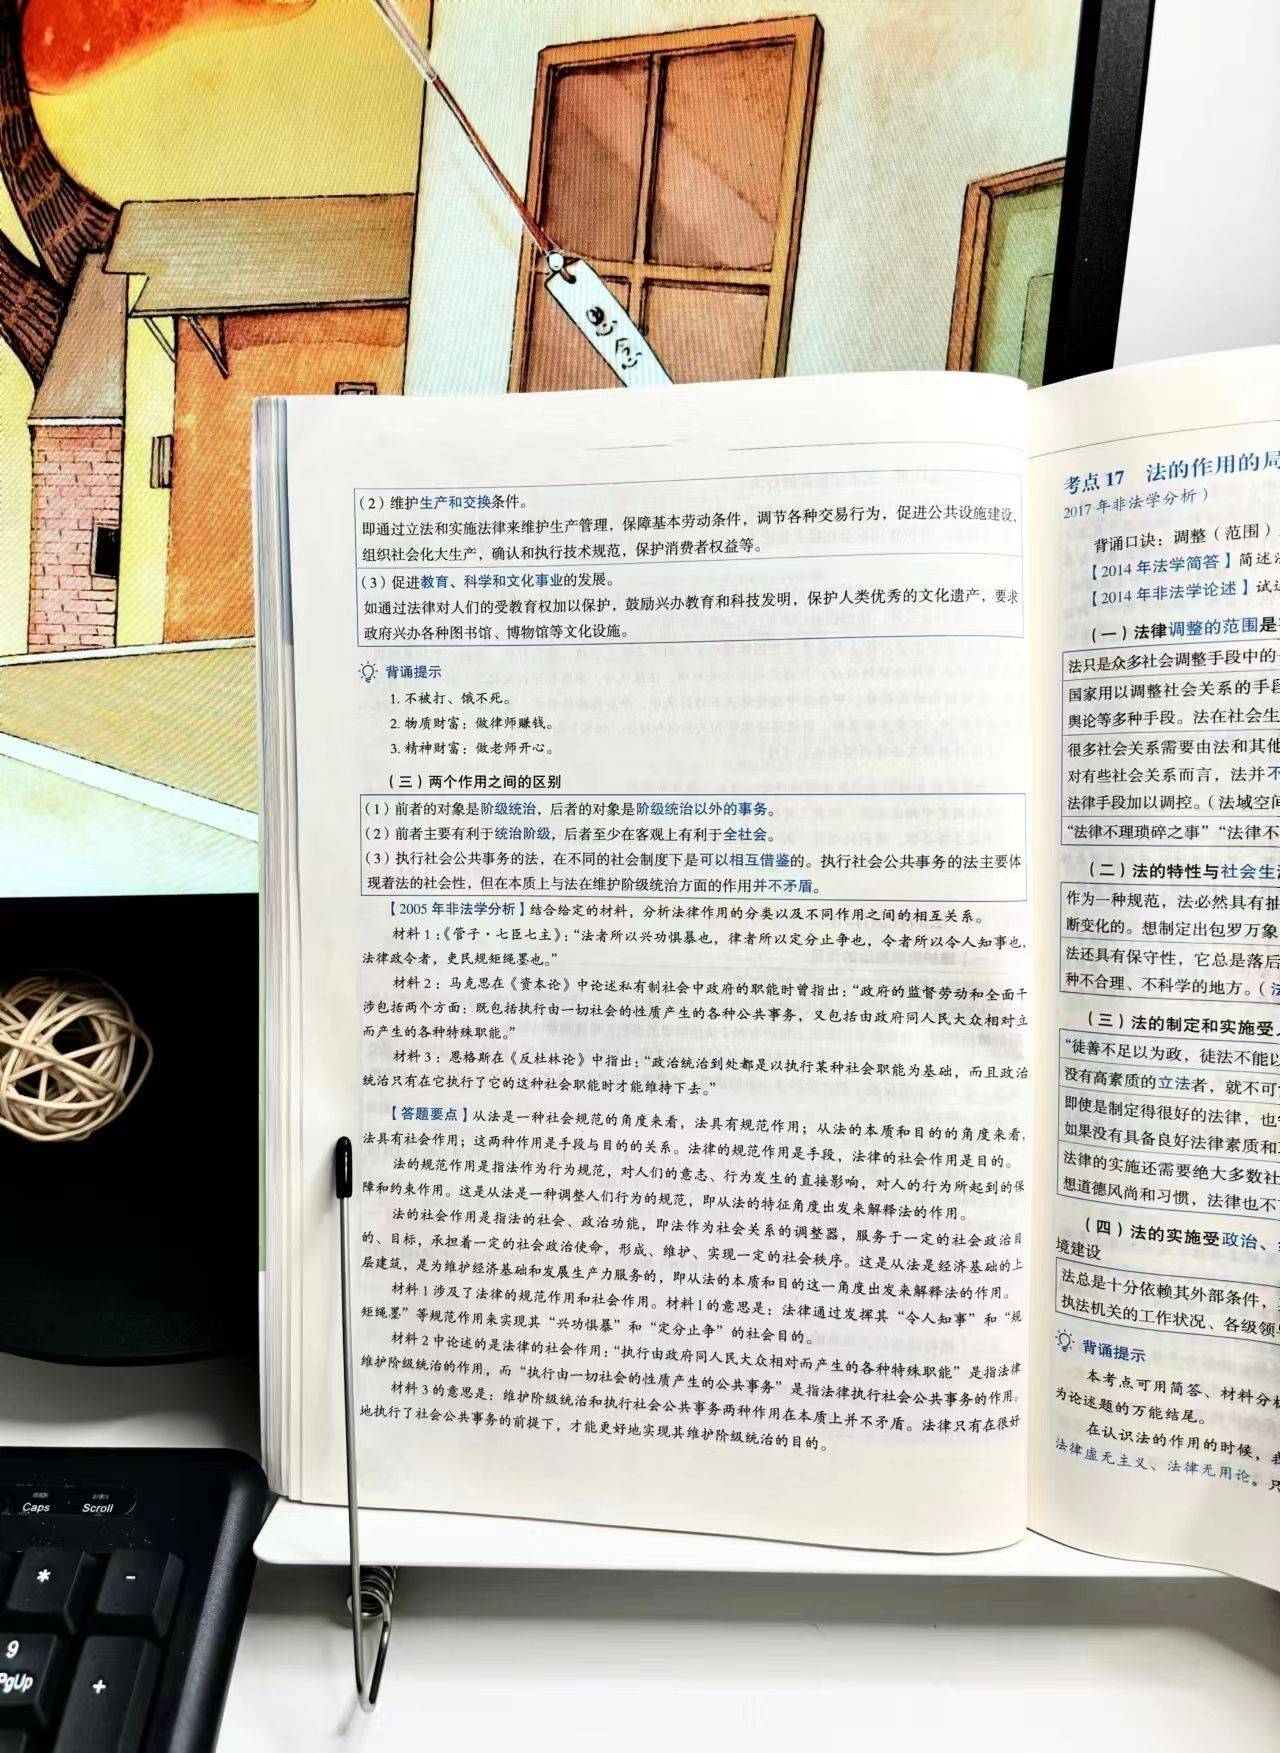 （2）维护生产和交换条件。
即通过立法和实施法律来维护生产管理，保障基本劳动条件，调节各种交易行为，促进公共设施建设，
组织社会化大生产，确认和执行技术规范，保护消费者权益等。
（3）促进教育、科学和文化事业的发展。
如通过法律对人们的受教育权加以保护，鼓励兴办教育和科技发明，保护人类优秀的文化遗产，要求
政府兴办各种图书馆、博物馆等文化设施。
背诵提示
1. 不被打、饿不死。
2. 物质财富：做律师赚钱。
3. 精神财富：做老师开心。
（三）两个作用之间的区别
（1）前者的对象是阶级统治，后者的对象是阶级统治以外的事务。
（2）前者主要有利于统治阶级，后者至少在客观上有利于全社会。
（3）执行社会公共事务的法，在不同的社会制度下是可以相互借鉴的。执行社会公共事务的法主要体
现着法的社会性，但在本质上与法在维护阶级统治方面的作用并不矛盾。
【2005年非法学分析】结合给定的材料，分析法律作用的分类以及不同作用之间的相互关系。
材料1：《管子·七臣七主》：“法者所以兴功惧暴也，律者所以定分止争也，令者所以令人知事也，
法律政令者，吏民规矩绳墨也。”
材料2：马克思在《资本论》中论述私有制社会中政府的职能时曾指出：“政府的监督劳动和全面干
涉包括两个方面：既包括执行由一切社会的性质产生的各种公共事务，又包括由政府同人民大众相对立
而产生的各种特殊职能。”
材料3：恩格斯在《反杜林论》中指出：“政治统治到处都是以执行某种社会职能为基础，而且政治
统治只有在它执行了它的这种社会职能时才能维持下去。”
【答题要点】从法是一种社会规范的角度来看，法具有规范作用；从法的本质和目的的角度来看，
法具有社会作用；这两种作用是手段与目的的关系。法律的规范作用是手段，法律的社会作用是目的。
法的规范作用是指法作为行为规范，对人们的意志、行为发生的直接影响，对人的行为所起到的保
障和约束作用。这是从法是一种调整人们行为的规范，即从法的特征角度出发来解释法的作用。
法的社会作用是指法的社会、政治功能，即法作为社会关系的调整器，服务于一定的社会政治目
的、目标，承担着一定的社会政治使命，形成、维护、实现一定的社会秩序。这是从法是经济基础的上
层建筑，是为维护经济基础和发展生产力服务的，即从法的本质和目的这一角度出发来解释法的作用。
材料1涉及了法律的规范作用和社会作用。材料1的意思是：法律通过发挥其“令人知事”和“规
矩绳墨”等规范作用来实现其“兴功惧暴”和“定分止争”的社会目的。
材料2中论述的是法律的社会作用：“执行由政府同人民大众相对而产生的各种特殊职能”是指法律
维护阶级统治的作用，而“执行由一切社会的性质产生的公共事务”是指法律执行社会公共事务的作用。
材料3的意思是：维护阶级统治和执行社会公共事务两种作用在本质上并不矛盾。法律只有在很好
地执行了社会公共事务的前提下，才能更好地实现其维护阶级统治的目的。
考点17 法的作用的局
2017年非法学分析）
背诵口诀：调整（范围）
【2014年法学简答】简述法
【2014年非法学论述】试论
（一）法律调整的范围是
法只是众多社会调整手段中的一
国家用以调整社会关系的手段
舆论等多种手段。法在社会生
很多社会关系需要由法和其他
对有些社会关系而言，法并不
法律手段加以调控。（法域空间
“法律不理琐碎之事”“法律不
（二）法的特性与社会生活
作为一种规范，法必然具有抽
断变化的。想制定出包罗万象
法还具有保守性，它总是落后
种不合理、不科学的地方。（法
（三）法的制定和实施受人
“徒善不足以为政，徒法不能以
没有高素质的立法者，就不可
即使是制定得很好的法律，也
如果没有具备良好法律素质和
法律的实施还需要绝大多数社
想道德风尚和习惯，法律也不
（四）法的实施受政治、
境建设
法总是十分依赖其外部条件，
执法机关的工作状况、各级领导
背诵提示
本考点可用简答、材料分析
为论述题的万能结尾。
在认识法的作用的时候，我
法律虚无主义、法律无用论。只
Caps Scroll
* -
9
PgUp +